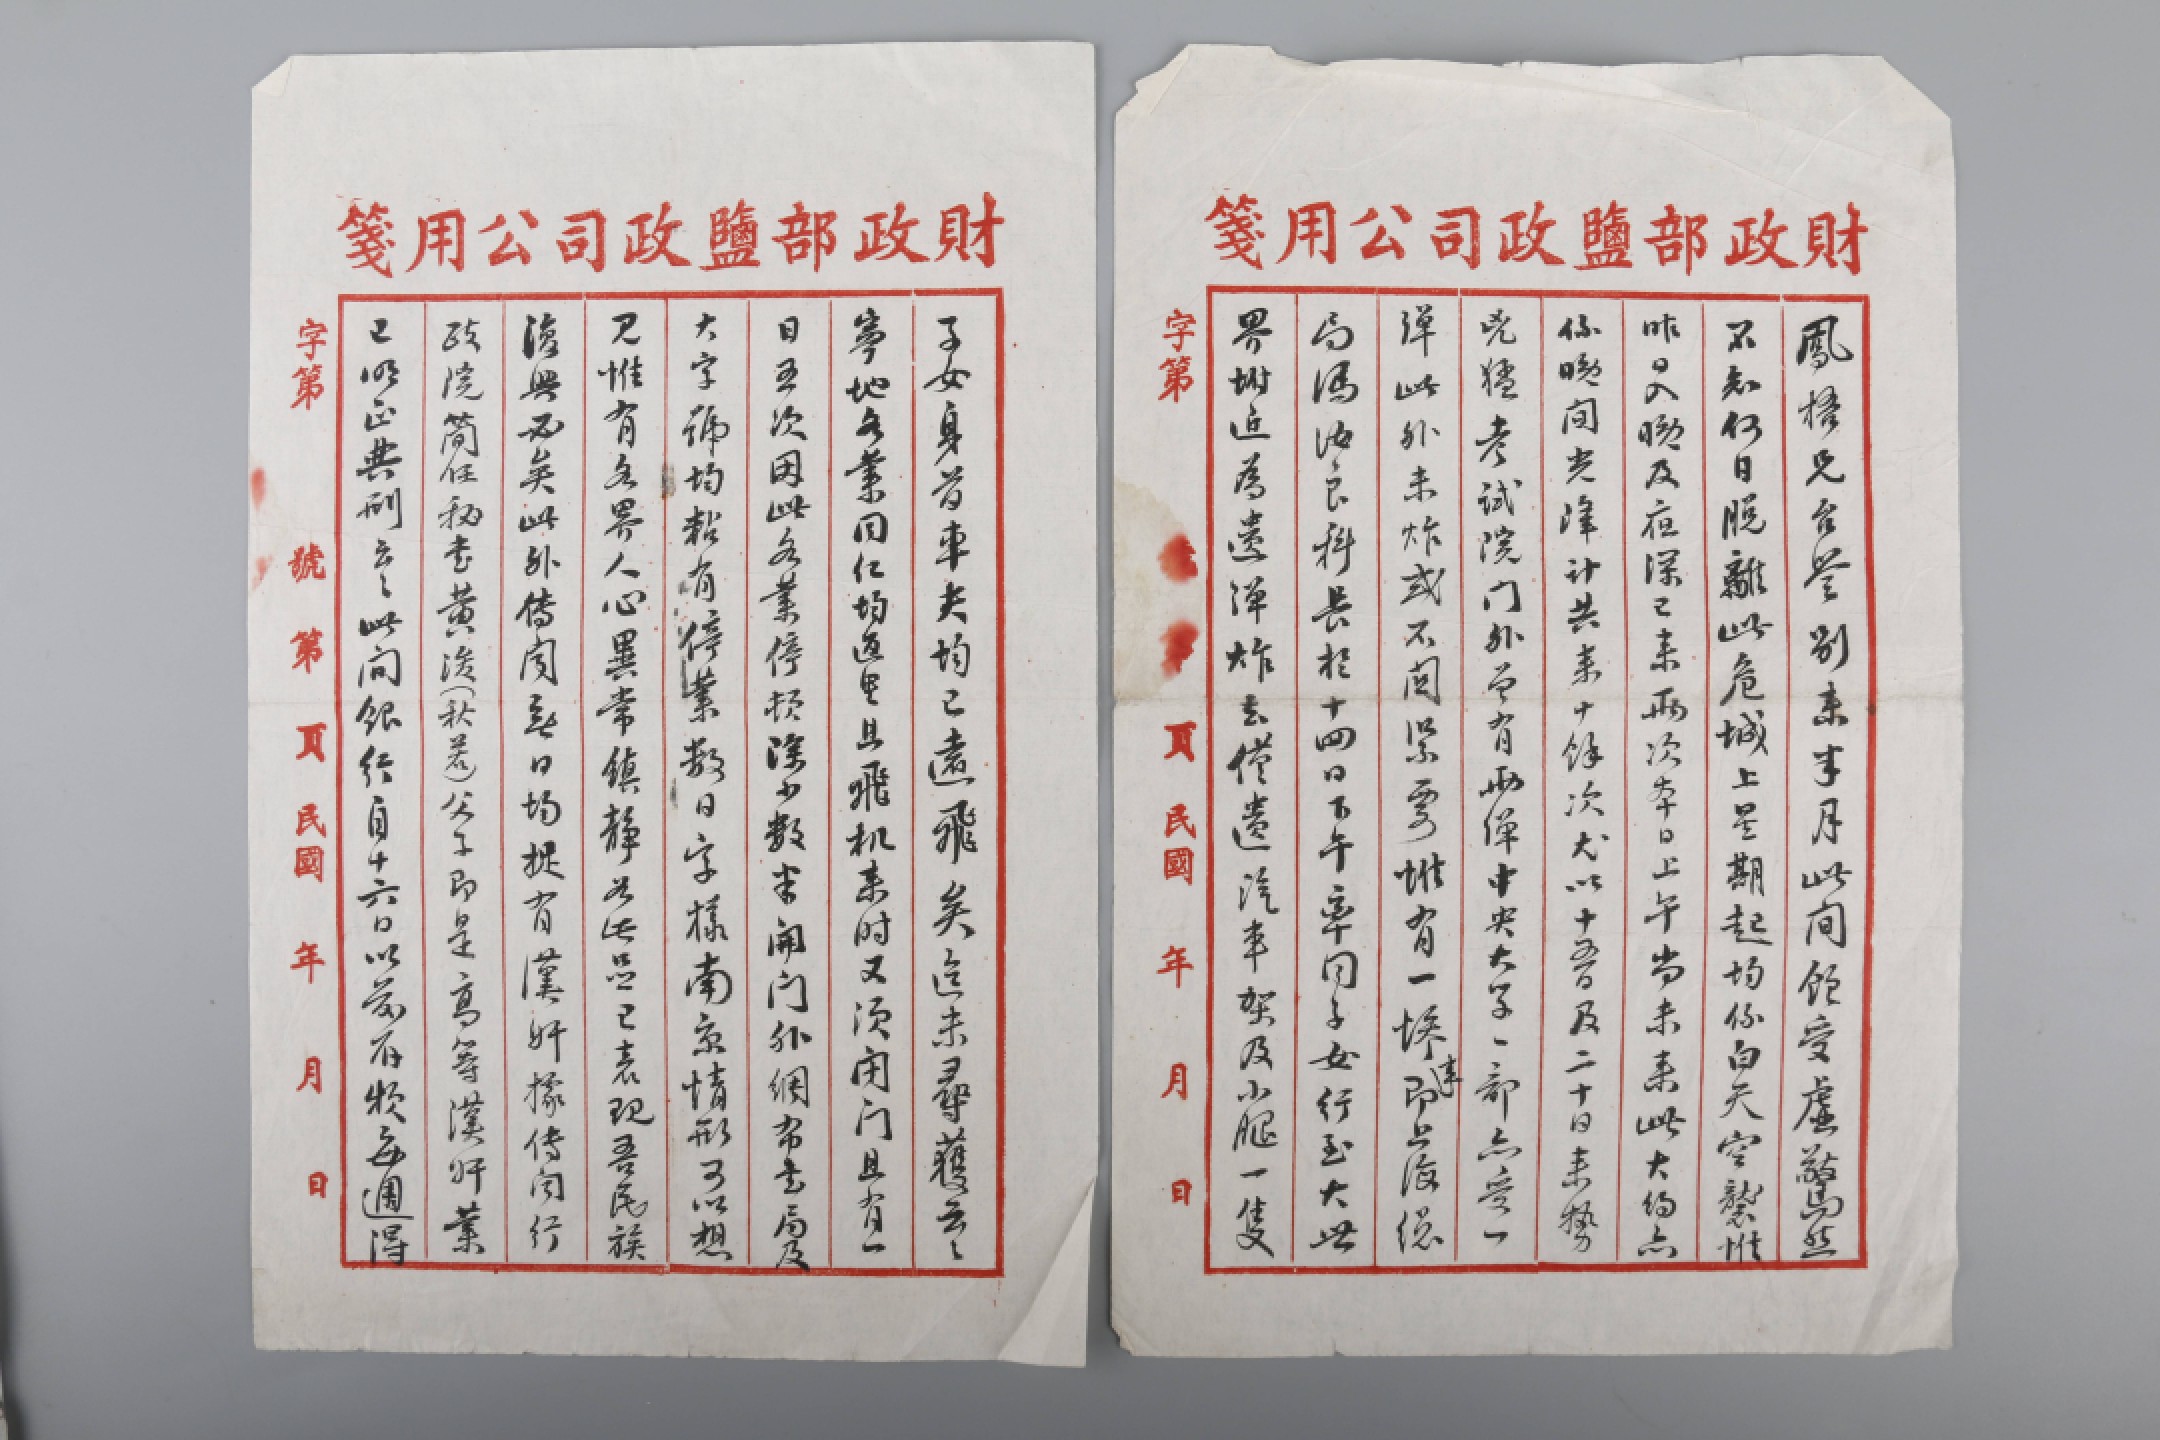 財政部鹽政司公用箋
鳳梧兄台鑒別來半月此間飽受虛驚然
不知何日脫離此危城上星期起均係白天空襲惟
昨日入晚及夜深已來兩次本日上午尚未來此大約亦
係晚間光降計共來十餘次尤以十五日及二十日來勢
兇猛考試院门外曾有兩彈中央大学一部亦受一
彈此外未炸或不関緊要惟有一慘事即上海總
局馮汝良科長於十四日下午率同子女行至大世
界附近為遺彈炸去僅遺汽車架及小腿一隻
字第 號第 頁民國 年 月 日
財政部鹽政司公用箋
子女身首車夫均已遠飛矣迄未尋獲云〻
寧地各業同仁均返里且飛机来时又須闭门且有一
日五次因此各業停頓除少數半開门外綢布書局及
大字號均黏有停業數日字樣南京情形可以想
見惟有各界人心異常鎮靜如此亦已表現吾民族
復興必矣此外傳闻每日均捉有漢奸據傳闻行
政院簡任秘書黄濬(秋岳)父子即是高等漢奸業
已明正典刑云〻此间銀行自十六日以前存款每週得
字第 號第 頁民國 年 月 日